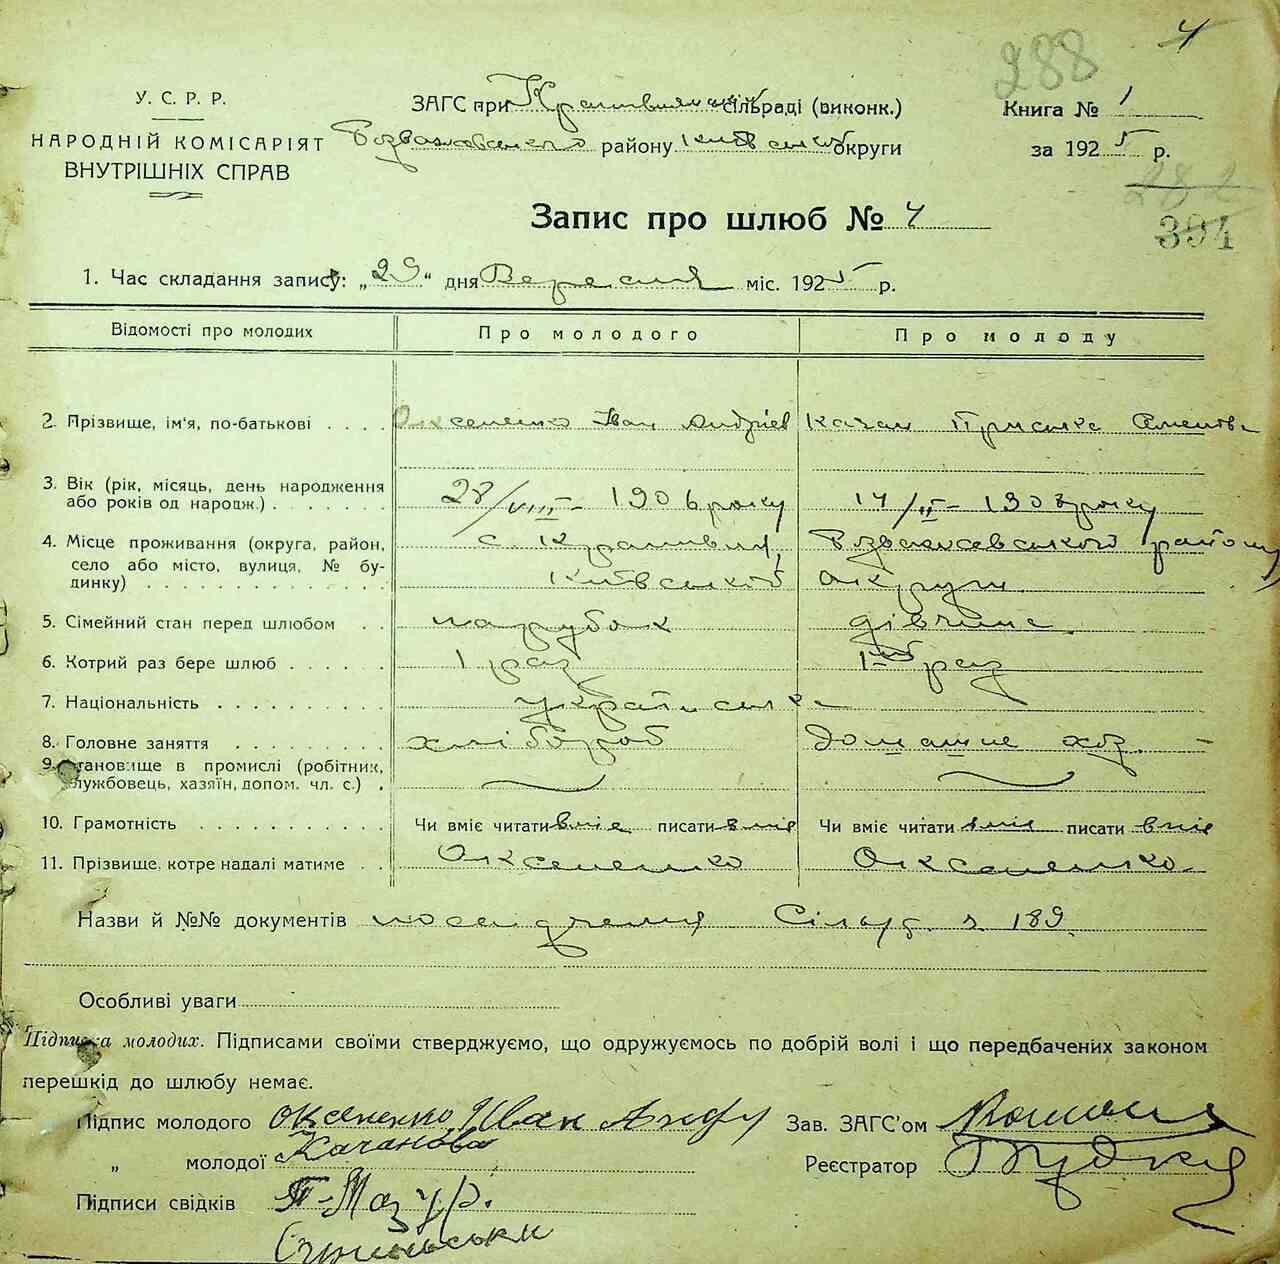 4
288
У. С. Р. Р.
НАРОДНІЙ КОМІСАРІЯТ
ВНУТРІШНІХ СПРАВ
ЗАГС при сільраді (виконк.)
району Київської округи
Книга № 1
за 1925 р.
282
394
Запис про шлюб № 4
1. Час складання запису: „29“ дня Вересня міс. 1925 р.
Відомості про молодих Про молодого Про молоду
2. Прізвище, ім'я, по-батькові . . . . Оксененко Іван Андріев Качан Семенов
3. Вік (рік, місяць, день народження
або років од народж.) . . . . . . . 28/VIII – 1906 року 14/II – 1903 року
4. Місце проживання (округа, район, с.
село або місто, вулиця, № бу-
динку) . . . . . . . . . . . . . Київської округи
5. Сімейний стан перед шлюбом . . парубок дівчина
6. Котрий раз бере шлюб . . . . . . 1 раз 1-ий раз
7. Національність . . . . . . . . . . українська
8. Головне заняття . . . . . . . . . хлібороб домашнє хоз.
9. становище в промислі (робітник,
службовець, хазяїн, допом. чл. с.) .
10. Грамотність . . . . . . . . . . . Чи вміє читати вміє писати вміє Чи вміє читати вміє писати вміє
11. Прізвище, котре надалі матиме . . Оксененко Оксененко
Назви й №№ документів посвідчення Сільрад. з 189
Особливі уваги
Підписка молодих. Підписами своїми стверджуємо, що одружуємось по добрій волі і що передбачених законом
перешкід до шлюбу немає.
Підпис молодого Оксененко Иван Андр Зав. ЗАГС'ом
„ молодої Качанова Реєстратор
Підписи свідків П-Мазур.